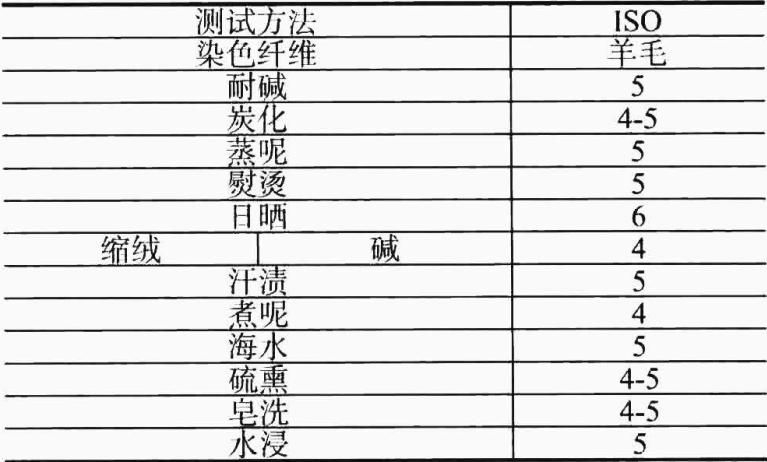 测试方法 ISO
染色纤维 羊毛
耐碱 5
炭化 4-5
蒸呢 5
熨烫 5
日晒 6
缩绒 碱 4
汗渍 5
煮呢 4
海水 5
硫熏 4-5
皂洗 4-5
水浸 5